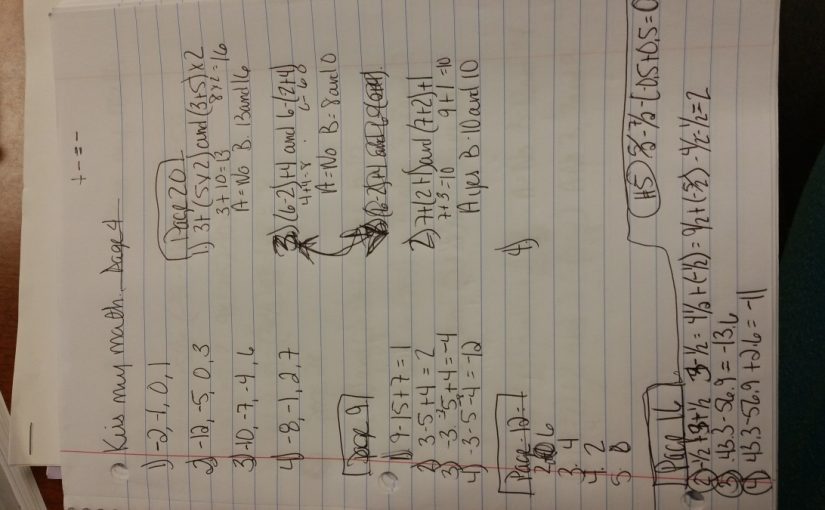 + - = -
Kris my math. Page 4
1) -2, -1, 0, 1
2) -12, -5, 0, 3
3) -10, -7, -4, 6
4) -8, -1, 2, 7
Page 20
1) 3+(5x2) and (3+5)x2
3+10=13 8x2=16
A=No B. 13 and 16
3) (6-2)+4 and 6-(2+4)
4+4=8 6-6=0
A=No B=8 and 0
2) 7+(2+1) and (7+2)+1
7+3=10 9+1=10
A yes B. 10 and 10
4)
Page 9
1) 9-15+7=1
2) 3-5+4=2
3) -3-5+4=-4
4) -3-5-4=-12
Page 12
2. 6
3. 4
4. 2
5. 8
Page 16
#5)
2) -½+3+½ 3-½=4½+(-½)=9/2+(-5/2)-4/2-½=2
3) 43.3-56.9=-13.6
4) 43.3-56.9+2.6=-11